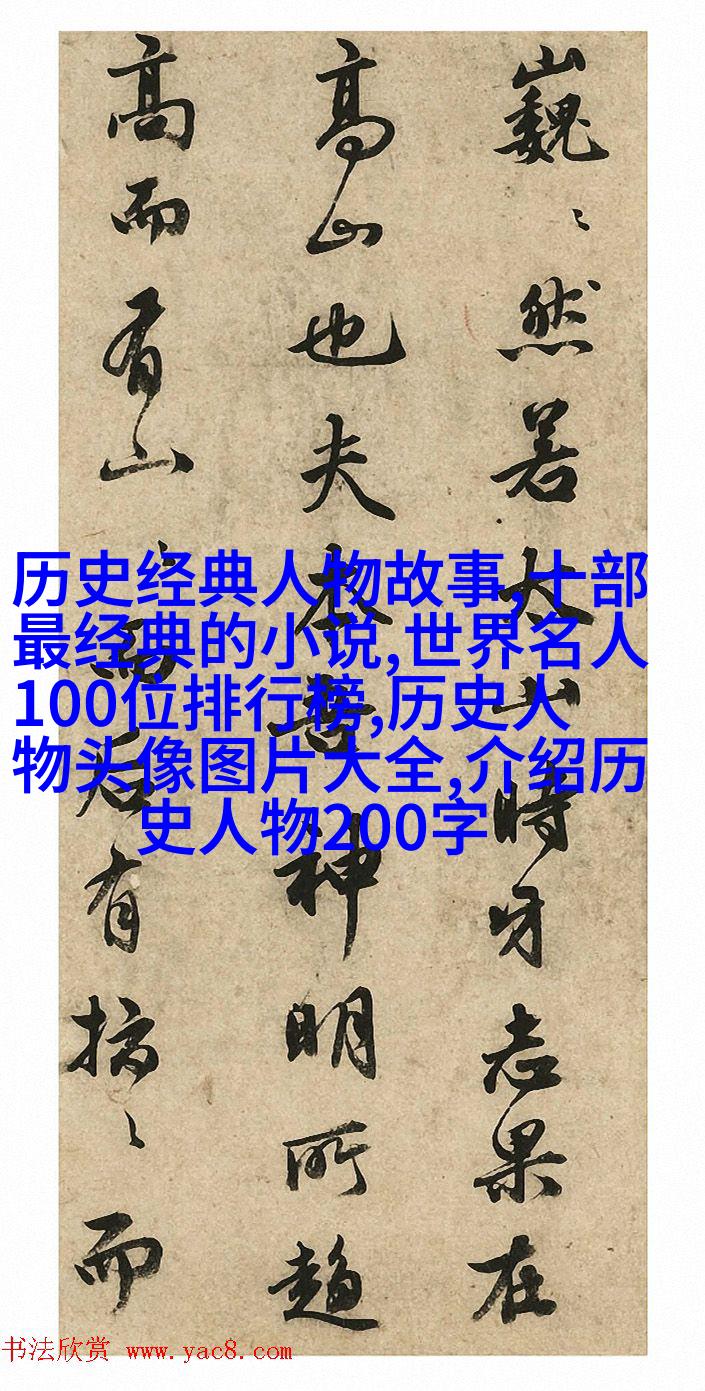 巍〻然若太山時牙志果在
高山也夫本神明所趨
高而有山〻而后有〻而
历史经典人物故事,十部
最经典的小说,世界名人
100位排行榜,历史人
物头像图片大全,介绍历
史人物200字
书法欣赏 www.yac8.com